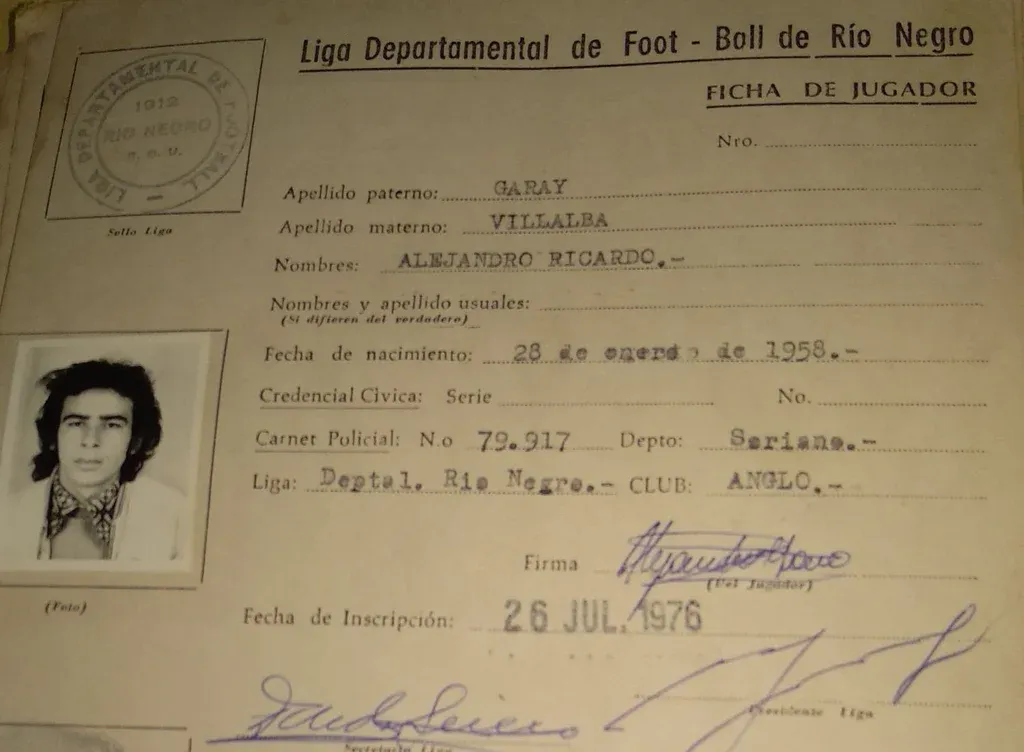 Liga Departamental de Foot - Boll de Río Negro
FICHA DE JUGADOR
LIGA DEPARTAMENTAL DE FOOTBALL
1912
RIO NEGRO
R. O. U.
Sello Liga
Nro.
Apellido paterno: GARAY
Apellido materno: VILLALBA
Nombres: ALEJANDRO RICARDO.-
Nombres y apellido usuales:
(Si difieren del verdadero)
Fecha de nacimiento: 28 de enero de 1958.-
Credencial Cívica: Serie No.
Carnet Policial: N.o 79.917 Depto: Soriano.-
Liga: Deptal. Rio Negro.- CLUB: ANGLO.-
(Foto)
Firma
(Del Jugador)
Fecha de Inscripción: 26 JUL. 1976
Presidente Liga
Secretario Liga